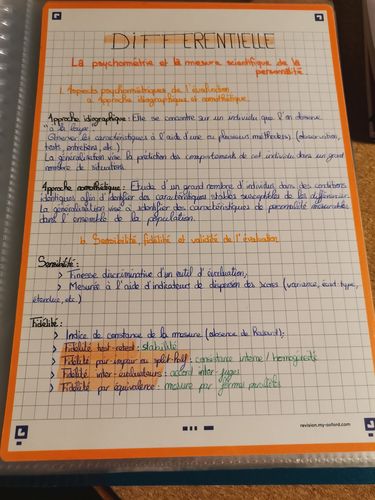 DIFFERENTIELLE
La psychométrie et la mesure scientifique de la
personnalité
1. Aspects psychométriques de l'évaluation
a. Approche idiographique et nomothétique.
Approche idiographique : Elle se concentre sur un individu que l'on observe
"à la loupe".
Observer les caractéristiques à l'aide d'une ou plusieurs méthode(s) (observation,
tests, entretiens, etc.)
La généralisation vise la prédiction des comportements de cet individu dans un grand
nombre de situations.
Approche nomothétique : Etude d'un grand nombre d'individus dans des conditions
identiques afin d'identifier des caractéristiques stables susceptibles de les différencier.
La généralisation vise à identifier des caractéristiques de personnalité mesurables
dans l'ensemble de la population.
b. Sensibilité, fidélité et validité de l'évaluation
Sensibilité :
> Finesse discriminative d'un outil d'évaluation,
> Mesurée à l'aide d'indicateurs de dispersion des scores (variance, écart-type,
étendue, etc.)
Fidélité :
> Indice de constance de la mesure (absence de hasard);
> Fidélité test-retest : stabilité
> Fidélité pair-impair ou split-half : consistance interne / homogénéité
> Fidélité inter-évaluateurs : accord inter-juges
> Fidélité par équivalence : mesure par formes parallèles
revision.my-oxford.com